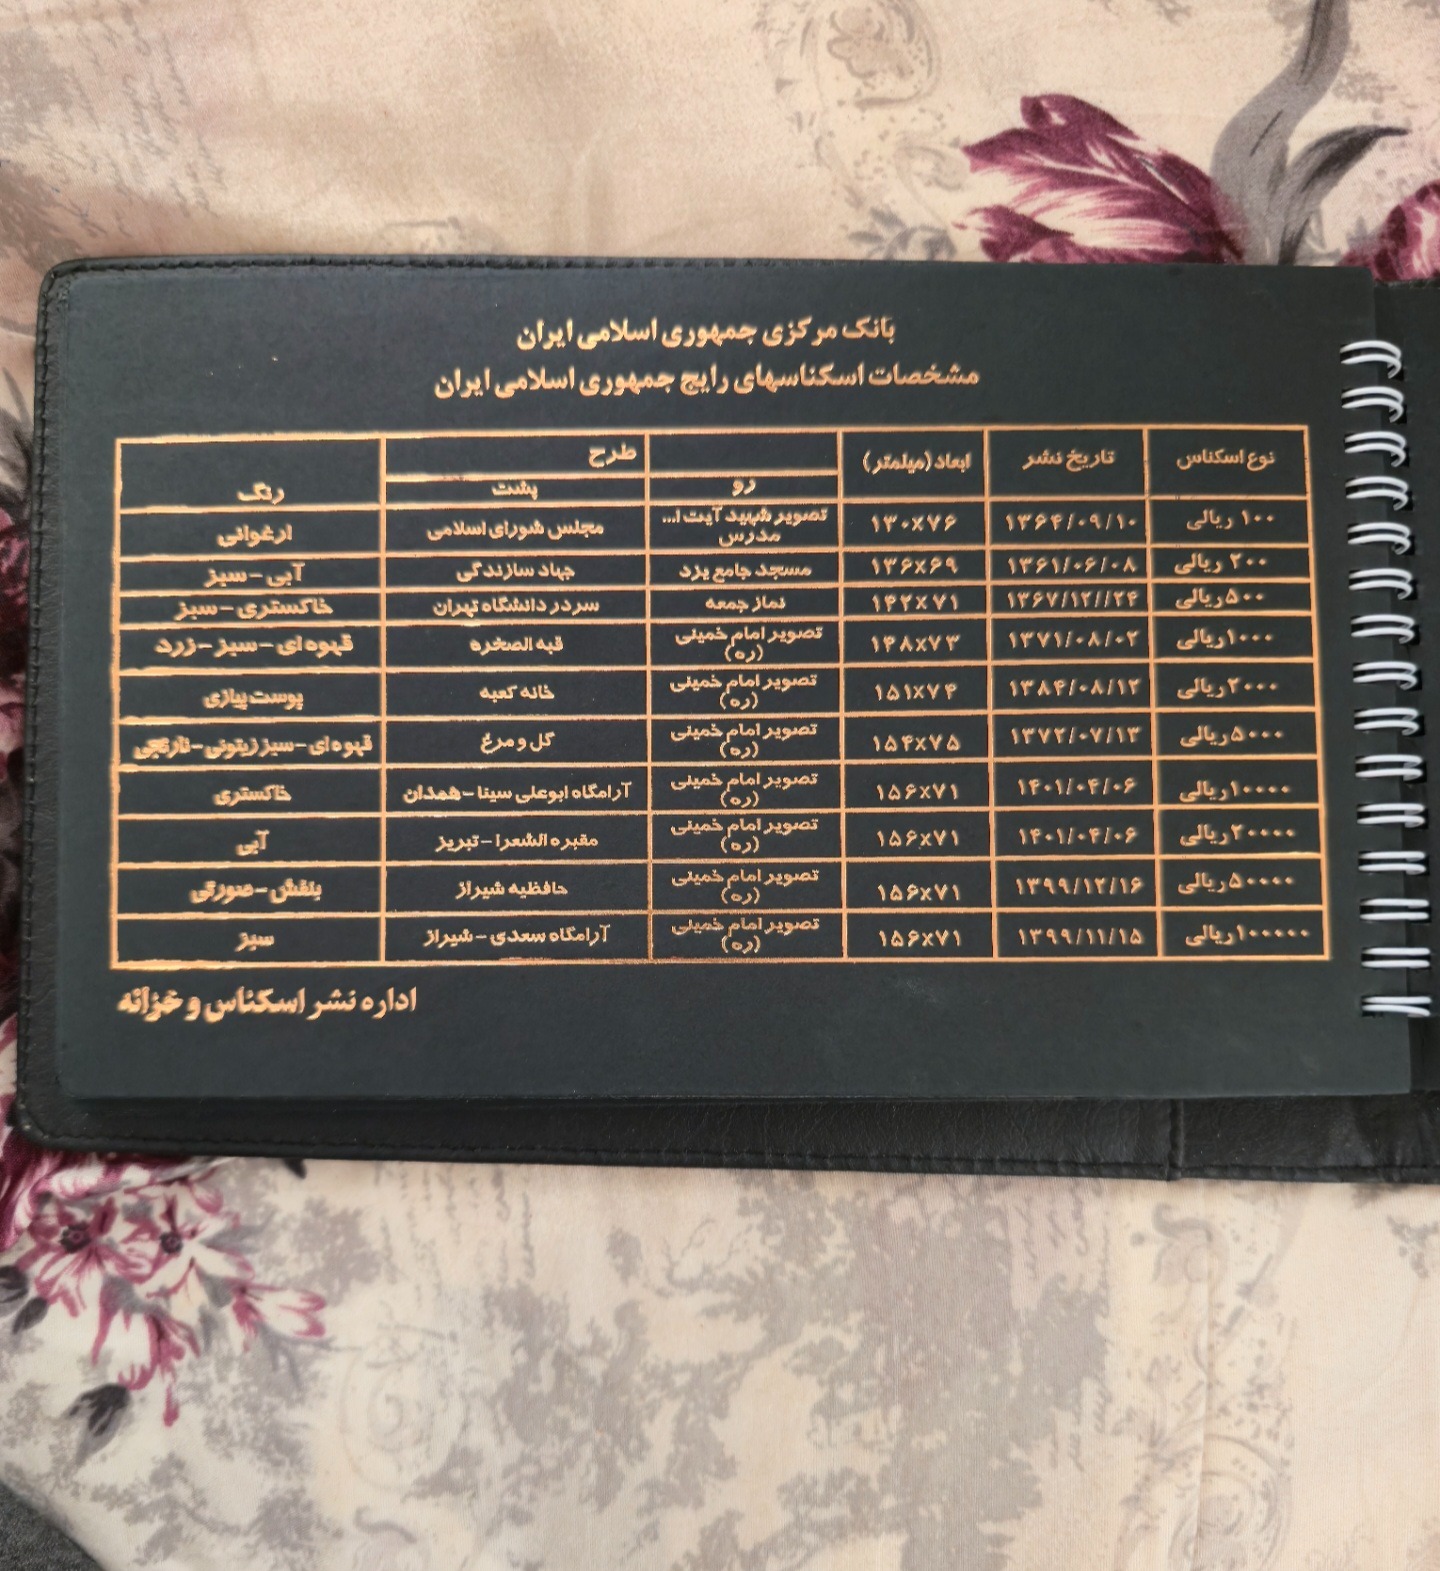 بانک مرکزی جمهوری اسلامی ایران
مشخصات اسکناسهای رایج جمهوری اسلامی ایران
نوع اسکناس تاریخ نشر ابعاد (میلمتر) طرح رنگ
رو پشت
۱۰۰ ریالی ۱۳۶۴/۰۹/۱۰ ۱۳۰x۷۶ تصویر شهید آیت ا... مدرس مجلس شورای اسلامی ارغوانی
۲۰۰ ریالی ۱۳۶۱/۰۶/۰۸ ۱۳۶x۶۹ مسجد جامع یزد جهاد سازندگی آبی - سبز
۵۰۰ ریالی ۱۳۶۷/۱۲//۲۴ ۱۴۲x۷۱ نماز جمعه سردر دانشگاه تهران خاکستری - سبز
۱۰۰۰ ریالی ۱۳۷۱/۰۸/۰۲ ۱۴۸x۷۳ تصویر امام خمینی (ره) قبه الصخره قهوه ای - سبز - زرد
۲۰۰۰ ریالی ۱۳۸۴/۰۸/۱۲ ۱۵۱x۷۴ تصویر امام خمینی (ره) خانه کعبه پوست پیازی
۵۰۰۰ ریالی ۱۳۷۲/۰۷/۱۳ ۱۵۴x۷۵ تصویر امام خمینی (ره) گل و مرغ قهوه ای - سبز زیتونی - نارنجی
۱۰۰۰۰ ریالی ۱۴۰۱/۰۴/۰۶ ۱۵۶x۷۱ تصویر امام خمینی (ره) آرامگاه ابوعلی سینا - همدان خاکستری
۲۰۰۰۰ ریالی ۱۴۰۱/۰۴/۰۶ ۱۵۶x۷۱ تصویر امام خمینی (ره) مقبره الشعرا - تبریز آبی
۵۰۰۰۰ ریالی ۱۳۹۹/۱۲/۱۶ ۱۵۶x۷۱ تصویر امام خمینی (ره) حافظیه شیراز بنفش - صورتی
۱۰۰۰۰۰ ریالی ۱۳۹۹/۱۱/۱۵ ۱۵۶x۷۱ تصویر امام خمینی (ره) آرامگاه سعدی - شیراز سبز
اداره نشر اسکناس و خزانه